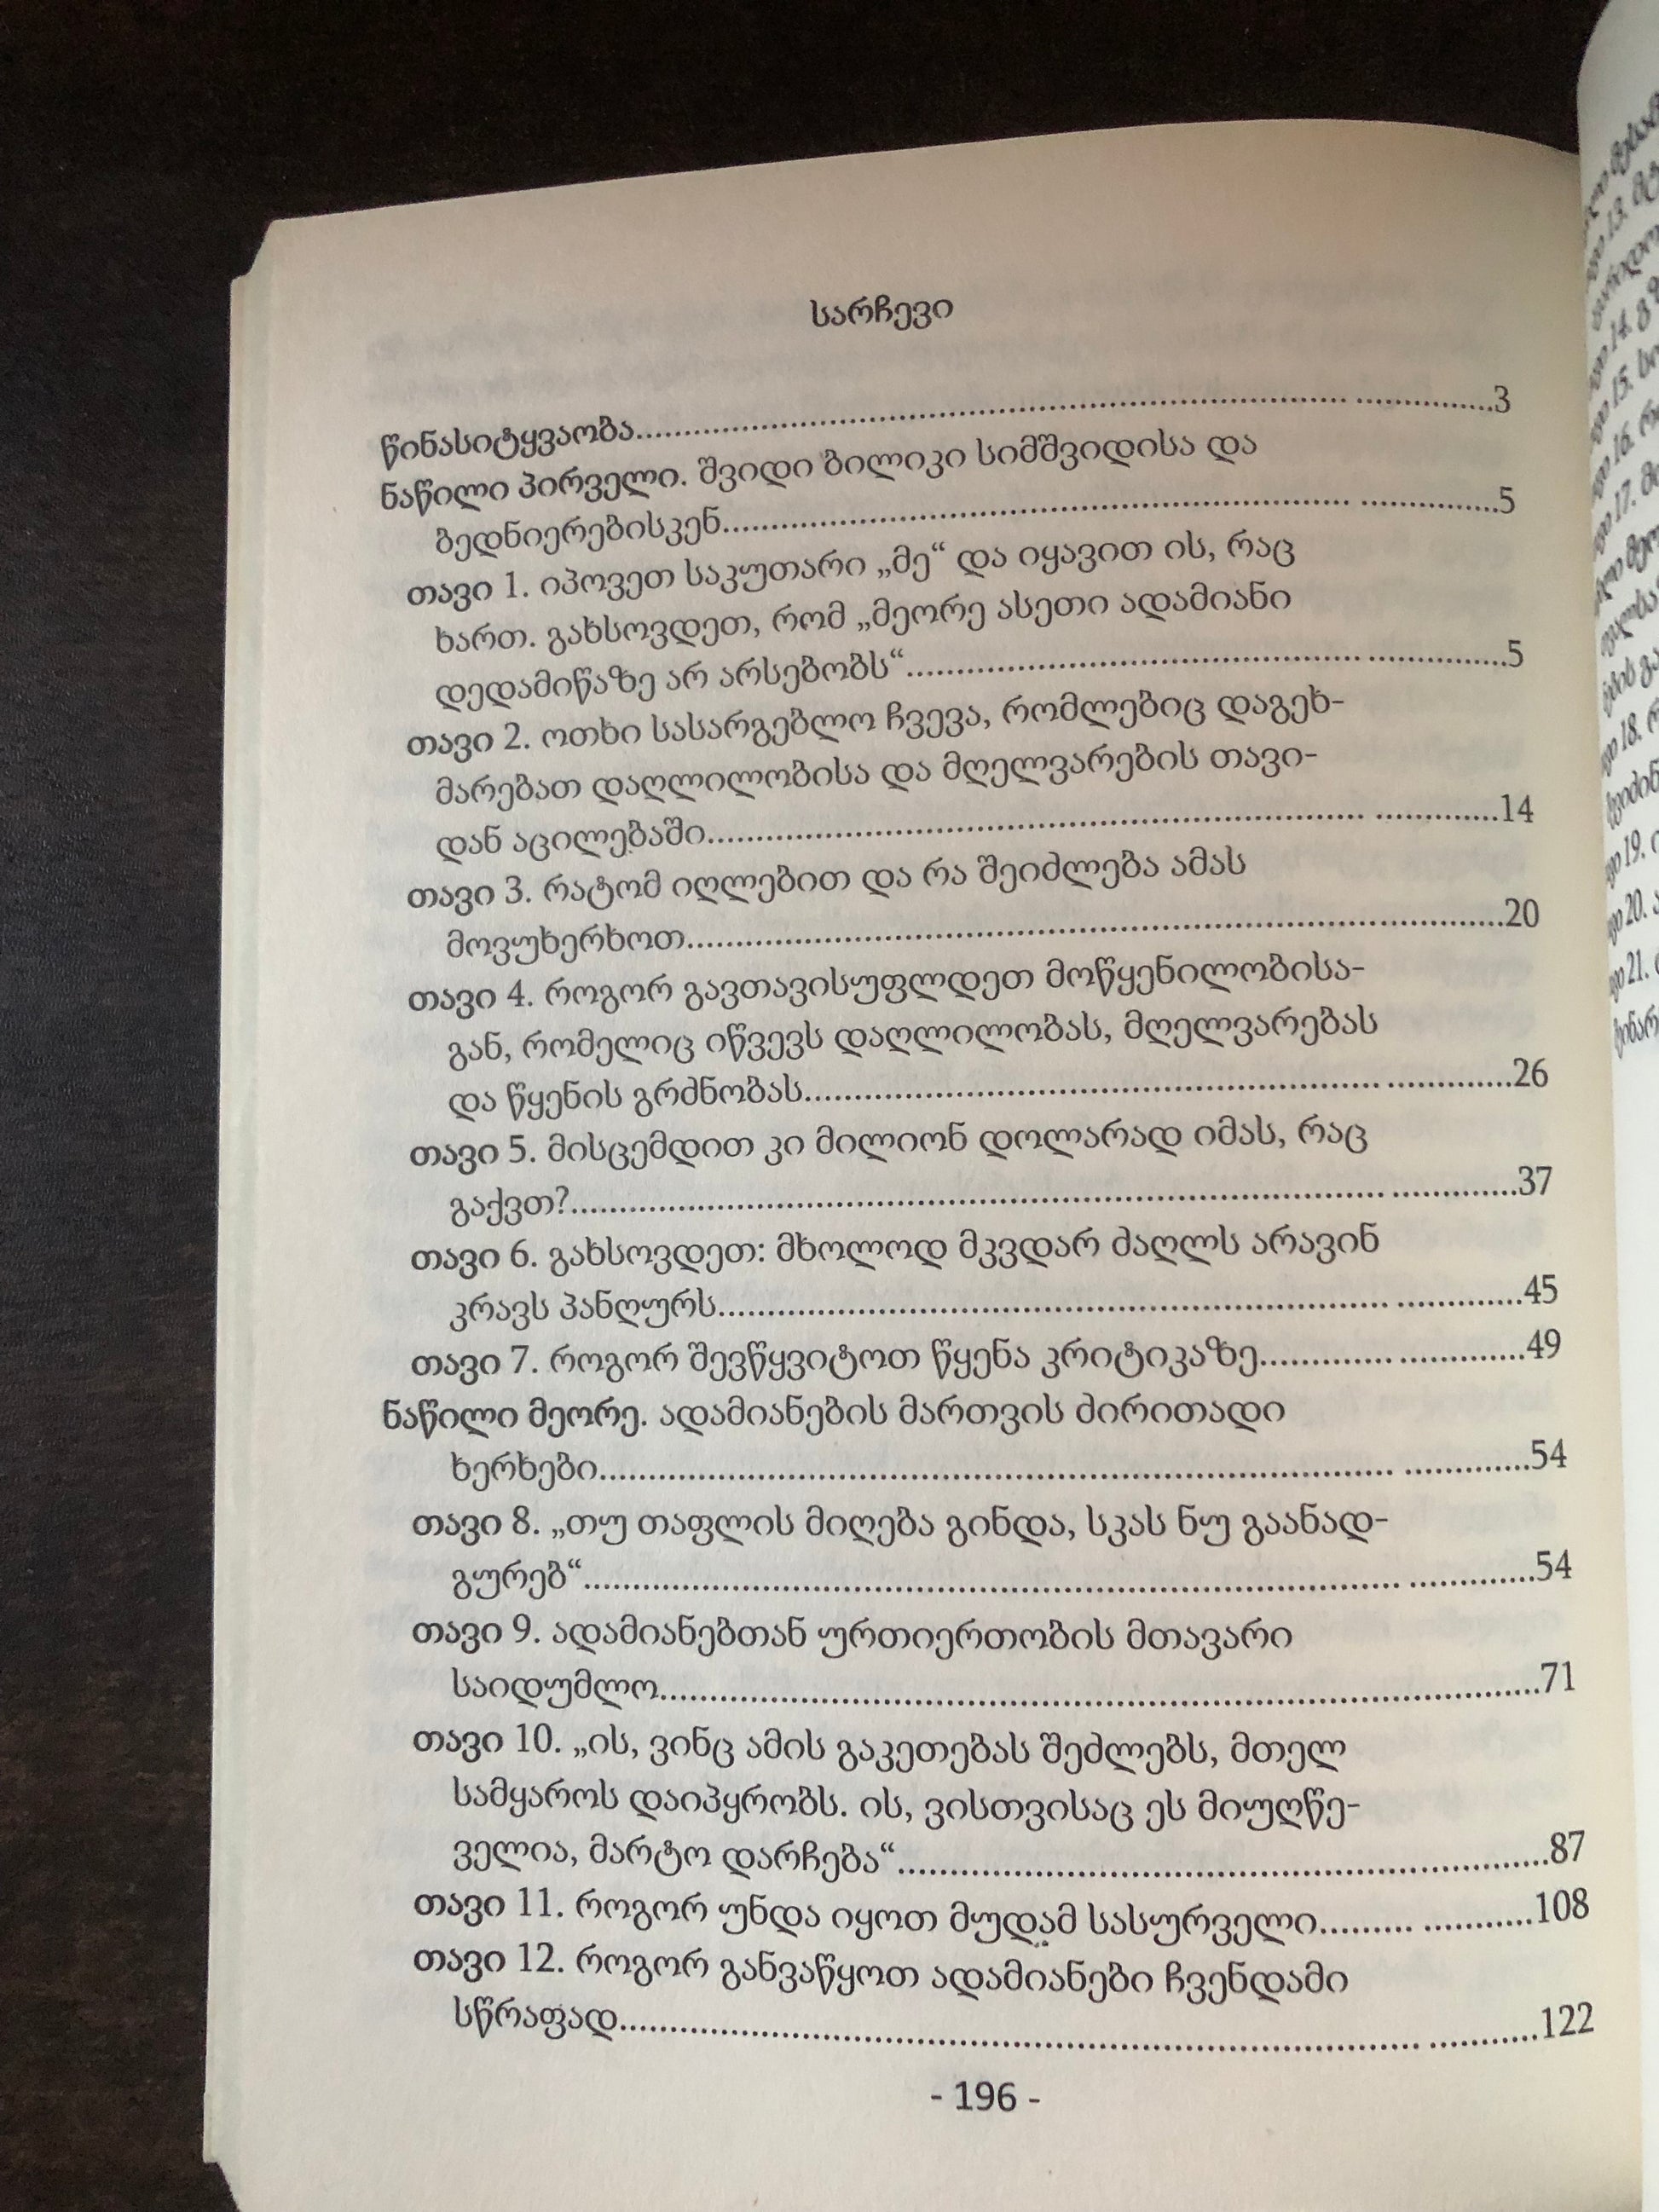 სარჩევი
წინასიტყვაობა........................................................................................3
ნაწილი პირველი. შვიდი ბილიკი სიმშვიდისა და
ბედნიერებისკენ................................................................................5
თავი 1. იპოვეთ საკუთარი „მე“ და იყავით ის, რაც
ხართ. გახსოვდეთ, რომ „მეორე ასეთი ადამიანი
დედამიწაზე არ არსებობს“..............................................................5
თავი 2. ოთხი სასარგებლო ჩვევა, რომლებიც დაგეხ-
მარებათ დაღლილობისა და მღელვარების თავი-
დან აცილებაში................................................................................14
თავი 3. რატომ იღლებით და რა შეიძლება ამას
მოვუხერხოთ..................................................................................20
თავი 4. როგორ გავთავისუფლდეთ მოწყენილობისა-
გან, რომელიც იწვევს დაღლილობას, მღელვარებას
და წყენის გრძნობას.......................................................................26
თავი 5. მისცემდით კი მილიონ დოლარად იმას, რაც
გაქვთ?..............................................................................................37
თავი 6. გახსოვდეთ: მხოლოდ მკვდარ ძაღლს არავინ
კრავს პანღურს................................................................................45
თავი 7. როგორ შევწყვიტოთ წყენა კრიტიკაზე..........................49
ნაწილი მეორე. ადამიანების მართვის ძირითადი
ხერხები............................................................................................54
თავი 8. „თუ თაფლის მიღება გინდა, სკას ნუ გაანად-
გურებ“..............................................................................................54
თავი 9. ადამიანებთან ურთიერთობის მთავარი
საიდუმლო.......................................................................................71
თავი 10. „ის, ვინც ამის გაკეთებას შეძლებს, მთელ
სამყაროს დაიპყრობს. ის, ვისთვისაც ეს მიუღწე-
ველია, მარტო დარჩება“.................................................................87
თავი 11. როგორ უნდა იყოთ მუდამ სასურველი....................108
თავი 12. როგორ განვაწყოთ ადამიანები ჩვენდამი
სწრაფად...........................................................................................122
- 196 -